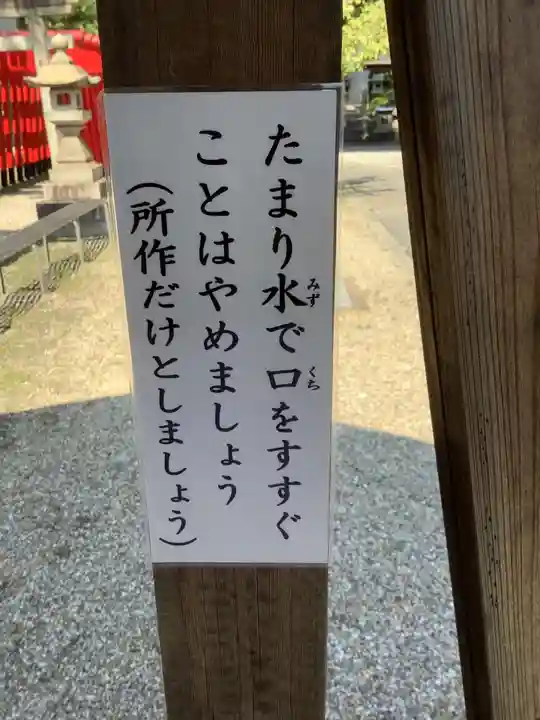 たまり水で口をすすぐ
みず
くち
ことはやめましょう
（所作だけとしましょう）